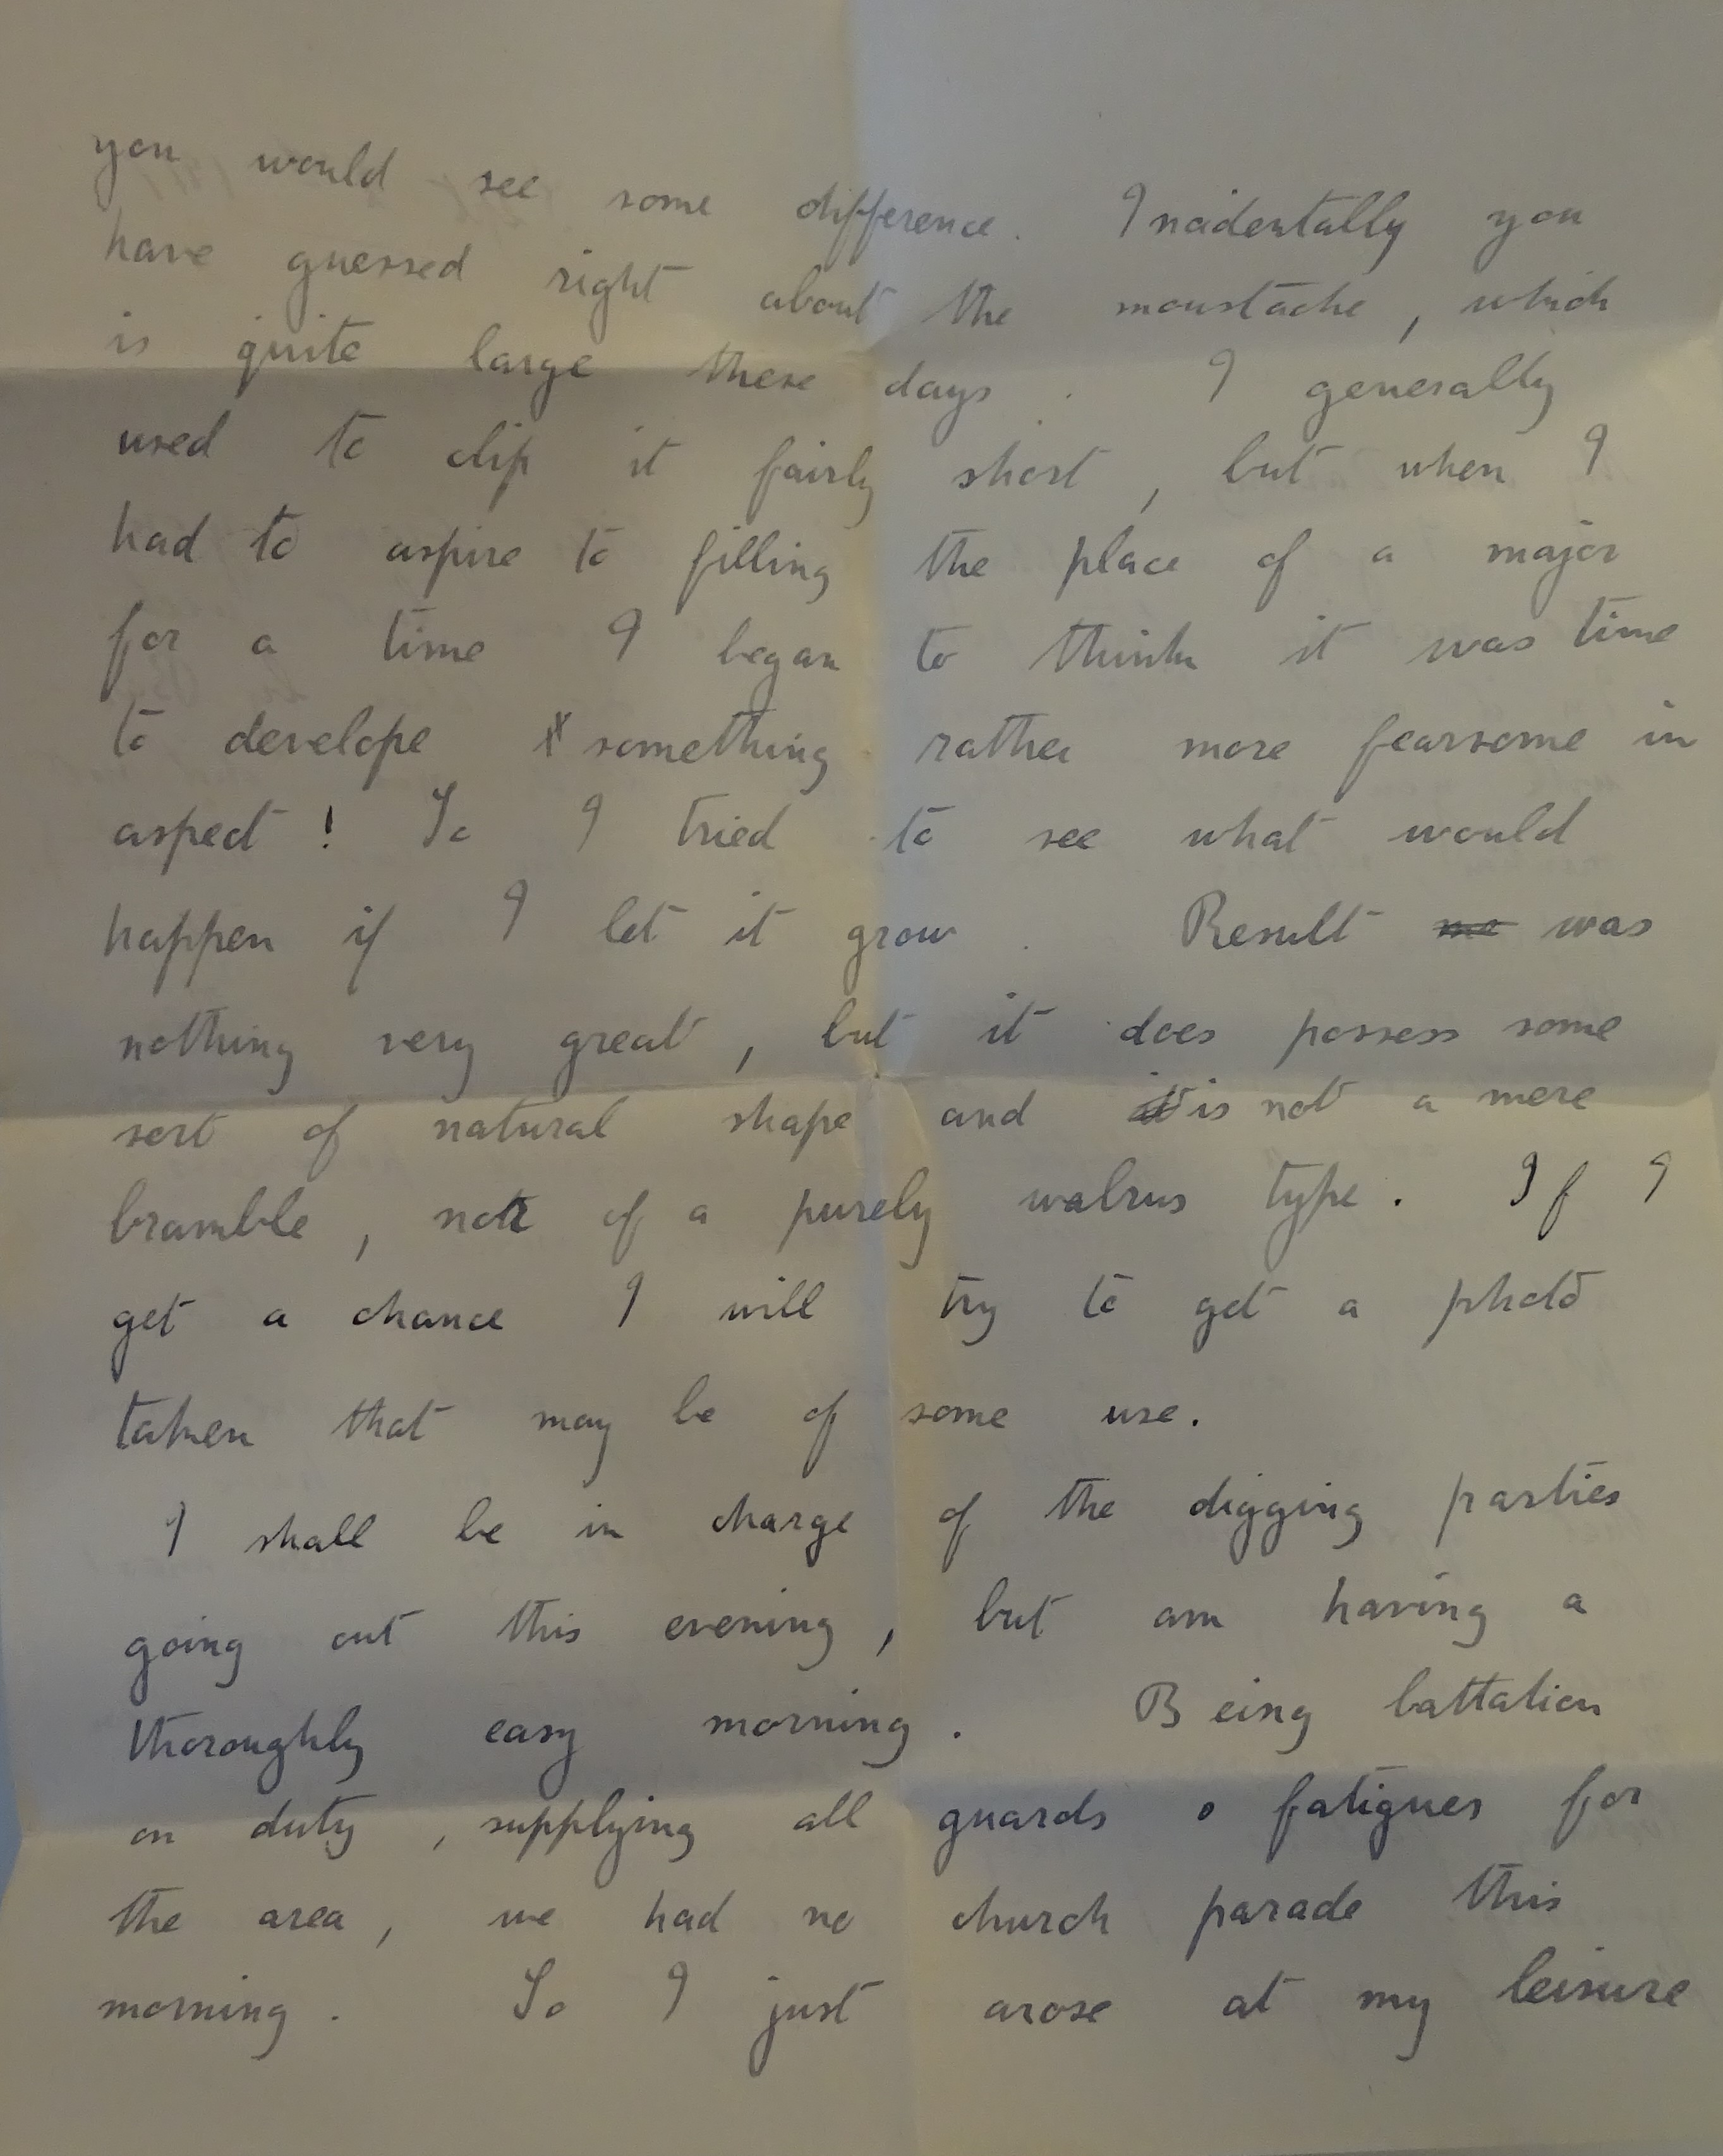 you would see some difference. Incidentally you
have guessed right about the moustache, which
is quite large these days. I generally
used to clip it fairly short, but when I
had to aspire to filling the place of a major
for a time I began to think it was time
to develope something rather more fearsome in
aspect! So I tried to see what would
happen if I let it grow. Result was
nothing very great, but it does possess some
sort of natural shape and is not a mere
bramble, nor of a purely walrus type. If I
get a chance I will try to get a photo
taken that may be of some use.
I shall be in charge of the digging parties
going out this evening, but am having a
thoroughly easy morning. Being battalion
on duty, supplying all guards & fatigues for
the area, we had no church parade this
morning. So I just arose at my leisure